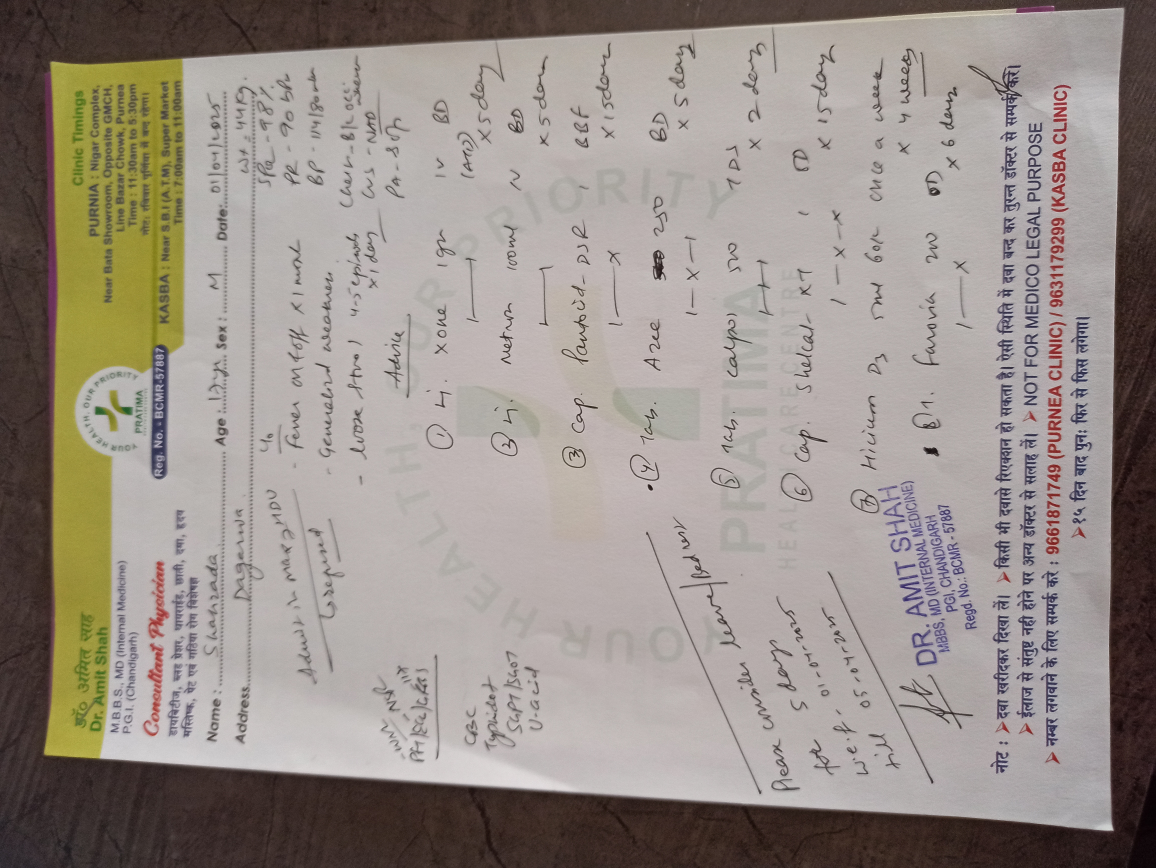 डॉ० अमित साह
Dr. Amit Shah
M.B.B.S., MD (Internal Medicine)
P.G.I. (Chandigarh)
Consultant Physician
डायबिटीज, ब्लड प्रेशर, थायराईड, छाती, दमा, हृदय
मस्तिष्क, पेट एवं गठिया रोग विशेषज्ञ
YOUR HEALTH, OUR PRIORITY
PRATIMA
Reg. No. - BCMR-57887
Clinic Timings
PURNIA : Nigar Complex,
Near Bata Showroom, Opposite GMCH,
Line Bazar Chowk, Purnea
Time : 11:30am to 5:30pm
नोट: रविवार पूर्णिया में बन्द रहेगा।
KASBA : Near S.B.I (A.T.M), Super Market
Time : 7:00am to 11:00am
Name : Shahzada Age : Sex : M Date: 01/04/2025
Address Dagarwa Wt = 44kg
SPO2 - 98%
PR - 90
BP - 114/80
- Fever on & off x 1 month
- Generalised weakness
- loose stool 4-5 episode x 1 day
Chest - B/L
CVS - NAD
PA - Soft
Advice
① Inj. Xone 1gm IV BD
1——1 (AST) x 5 day
② Inj. Metron 100ml IV BD
1——1 x 5 days
③ Cap. Pantocid-DSR 1 BBF
1——x x 15 days
④ Tab. Azee 250 BD
1-x-1 x 5 day
⑤ Tab. Calpol 500 TDS
1-1-1 x 2 days
⑥ Cap. Shelcal-XT 1 OD
1-x-x x 15 day
⑦ D3 60K once a week
x 4 weeks
⑧ T. Farovia 200 OD
1——x x 6 days
CBC
Typhidot
SGPT/SGOT
U-acid
Please consider leave/Bedrest
for 5 days
w.e.f. 01-04-2025
till 05-04-2025
DR. AMIT SHAH
MBBS, MD (INTERNAL MEDICINE)
PGI, CHANDIGARH
Regd. No.: BCMR-57887
YOUR HEALTH OUR PRIORITY
PRATIMA
HEALTHCARE CENTRE
नोट : ➤ दवा खरीदकर दिखा लें। ➤ किसी भी दवासे रिएक्शन हो सकता है। ऐसी स्थिति में दवा बन्द कर तुरन्त डॉक्टर से सम्पर्क करें।
➤ ईलाज से संतुष्ट नही होने पर अन्य डॉक्टर से सलाह लें। ➤ NOT FOR MEDICO LEGAL PURPOSE
➤ नम्बर लगवाने के लिए सम्पर्क करे : 9661871749 (PURNEA CLINIC) / 9631179299 (KASBA CLINIC)
➤ १५ दिन बाद पुन: फिर से फिस लगेगा।